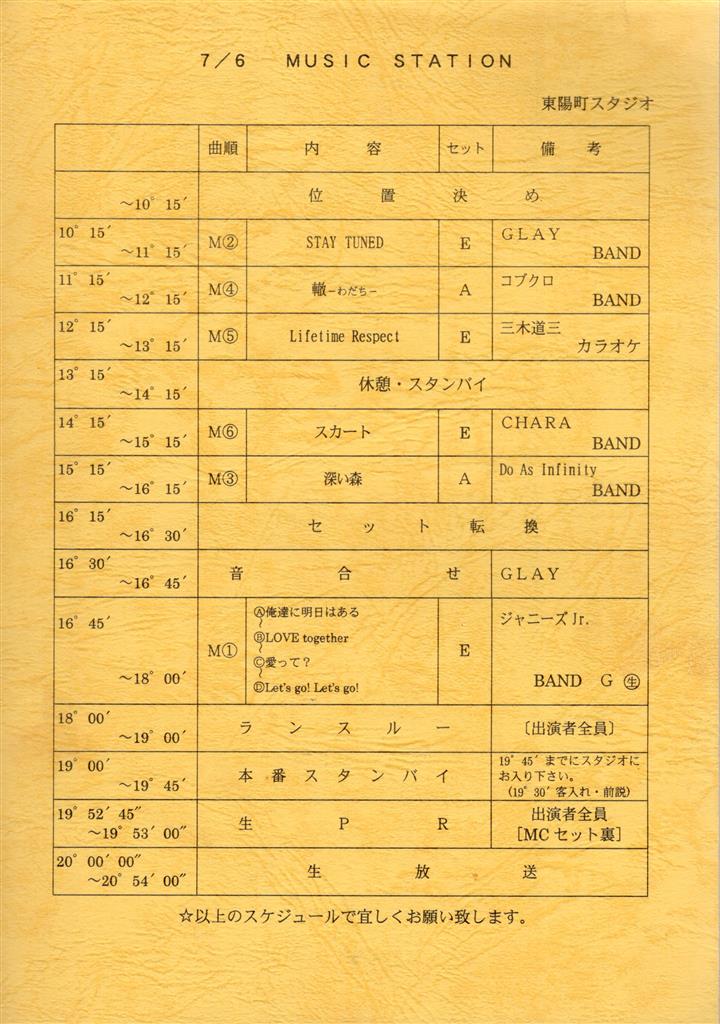 7/6 MUSIC STATION
東陽町スタジオ
曲順 内容 セット 備考
～10° 15′ 位置決め
10° 15′ ～11° 15′ M② STAY TUNED E GLAY BAND
11° 15′ ～12° 15′ M④ 轍－わだち－ A コブクロ BAND
12° 15′ ～13° 15′ M⑤ Lifetime Respect E 三木道三 カラオケ
13° 15′ ～14° 15′ 休憩・スタンバイ
14° 15′ ～15° 15′ M⑥ スカート E CHARA BAND
15° 15′ ～16° 15′ M③ 深い森 A Do As Infinity BAND
16° 15′ ～16° 30′ セット転換
16° 30′ ～16° 45′ 音合せ GLAY
16° 45′ ～18° 00′ M①
Ⓐ俺達に明日はある
～
ⒷLOVE together
～
Ⓒ愛って？
～
ⒹLet's go! Let's go!
E ジャニーズJr.
BAND G ㊤生
18° 00′ ～19° 00′ ランスルー 〔出演者全員〕
19° 00′ ～19° 45′ 本番スタンバイ
19° 45′ までにスタジオに
お入り下さい。
（19° 30′ 客入れ・前説）
19° 52′ 45″ ～19° 53′ 00″ 生PR
出演者全員
［MCセット裏］
20° 00′ 00″ ～20° 54′ 00″ 生放送
☆以上のスケジュールで宜しくお願い致します。